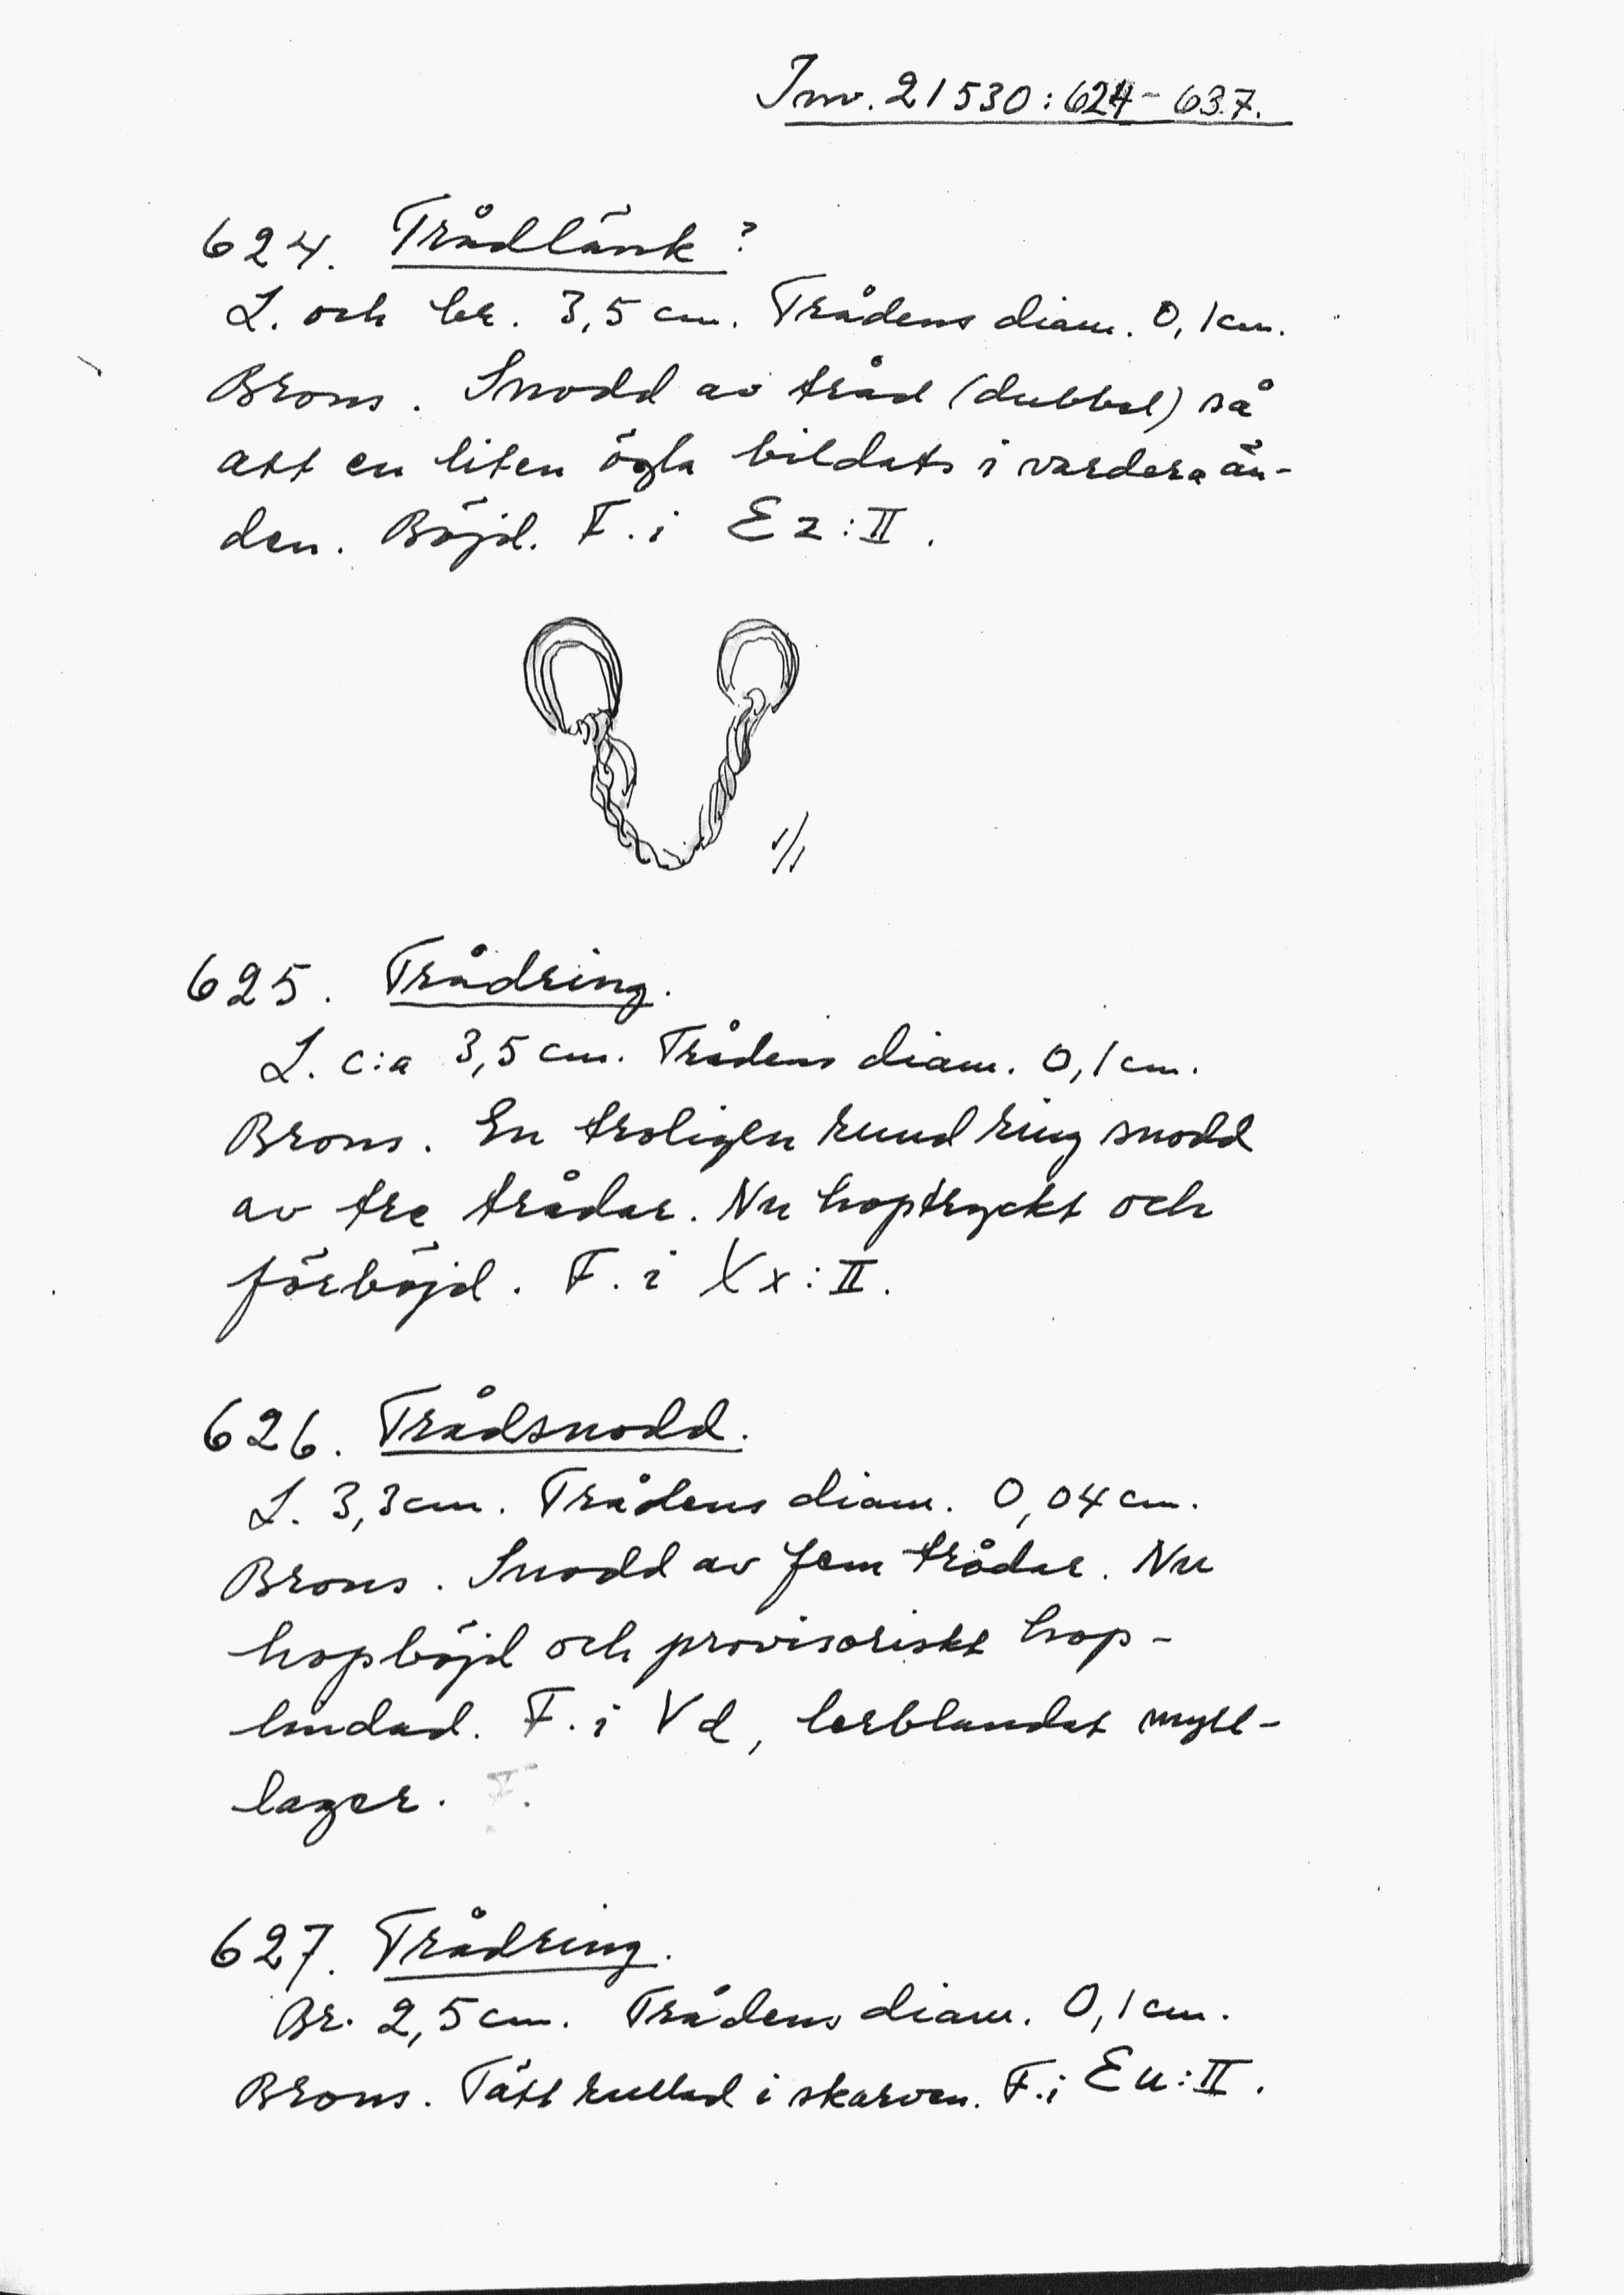 Inv. 21530:624-637.
624. Trådlänk?
L. och br. 3,5 cm. Trådens diam. 0,1 cm.
Brons. Snodd av tråd (dubbel) så
att en liten ögla bildats i vardera än-
den. Böjd. F. i Ez:II.
1/1
625. Trådring.
L. c:a 3,5 cm. Trådens diam. 0,1 cm.
Brons. En troligen rund ring snodd
av tre trådar. Nu hoptryckt och
förböjd. F. i Xx:II.
626. Trådsnodd.
L. 3,3 cm. Trådens diam. 0,04 cm.
Brons. Snodd av fem trådar. Nu
hopböjd och provisoriskt hop-
lindad. F. i Vd, lerblandat myll-
lager.
627. Trådring.
Br. 2,5 cm. Trådens diam. 0,1 cm.
Brons. Tätt rullad i skarven. F. i Eu:II.